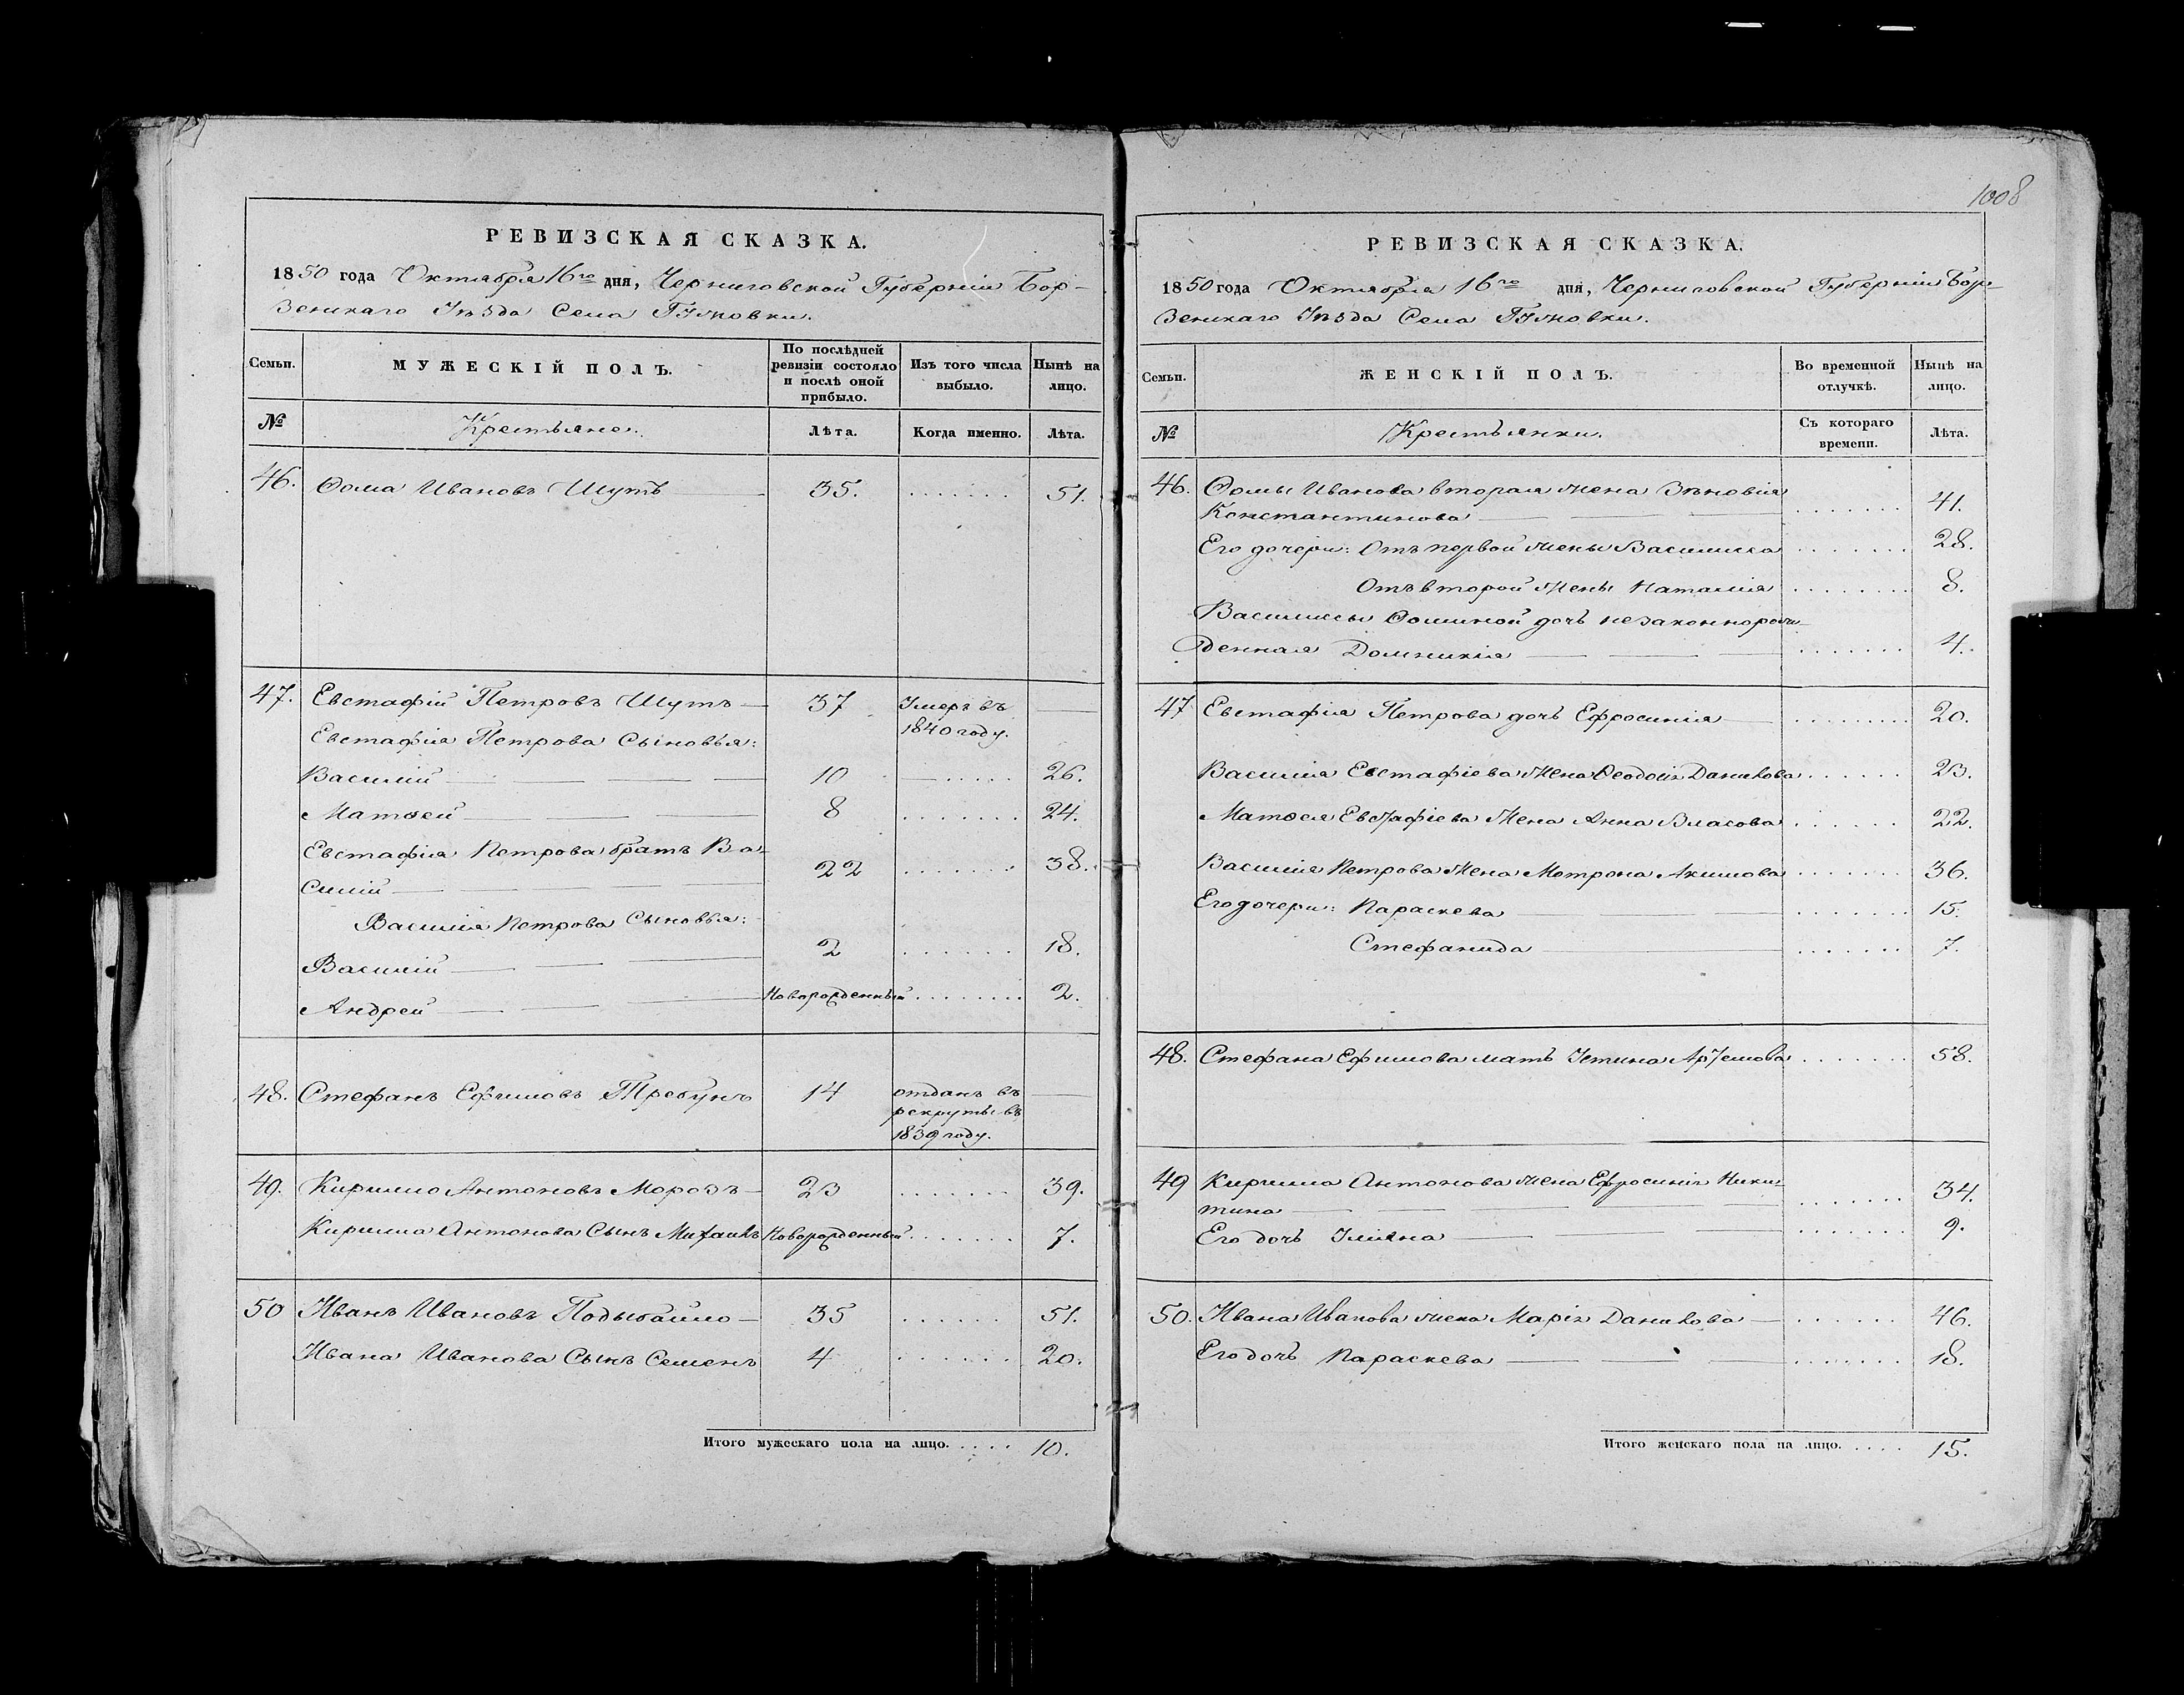 РЕВИЗСКАЯ СКАЗКА.
1850 года Октября 16го дня, Черниговской Губерніи Бор-
зенскаго Уѣзда Села
Семьи. МУЖЕСКІЙ ПОЛЪ. По послѣдней ревизіи состояло и послѣ оной прибыло. Изъ того числа выбыло. Нынѣ на лицо.
№ Крестьяне. Лѣта. Когда именно. Лѣта.
46. Ѳома Ивановъ Шутъ 35. 51.
47. Евстафій Петровъ Шутъ 37 Умеръ въ
1840 году.
Евстафія Петрова Сыновья:
Василій 10 26.
Матѳей 8 24.
Евстафія Петрова братъ Ва-
силій 22 38.
Василія Петрова Сыновья:
Василій 2 18.
Андрей Новорожденный 2.
48. Стефанъ Ефимовъ Требунъ 14 отданъ въ
рекруты въ
1839 году.
49. Кирилло Антоновъ Морозъ 23 39.
Кирилла Антонова Сынъ Михаилъ Новорожденный 7.
50 Иванъ Ивановъ 35 51.
Ивана Иванова Сынъ Семенъ 4 20.
Итого мужескаго пола на лицо. 10.
1008
РЕВИЗСКАЯ СКАЗКА.
1850 года Октября 16го дня, Черниговской Губерніи Бор-
зенскаго Уѣзда Села
Семьи. ЖЕНСКІЙ ПОЛЪ. Во временной отлучкѣ. Нынѣ на лицо.
№ Крестьянки. Съ котораго времени. Лѣта.
46. Ѳомы Иванова вторая жена Зѣновія
Константинова 41.
Его дочери: Отъ первой жены Василисса 28.
Отъ второй жены Наталія 8.
Василиссы Ѳоминой дочь незаконнорож-
денная Домникія 4.
47 Евстафія Петрова дочь Ефросинія 20.
Василія Евстафіева жена Ѳеодосія Данилова 23.
Матѳея Евстафіева жена Анна Власова 22.
Василія Петрова жена Мотрона Акимова 36.
Его дочери: Параскева 15.
Стефанида 7.
48. Стефана Ефимова мать Устина Артемова 58.
49 Кирилла Антонова жена Ефросинія Ники-
тина 34.
Его дочь Уліяна 9.
50. Ивана Иванова жена Марія Данилова 46.
Его дочь Параскева 18.
Итого женскаго пола на лицо. 15.